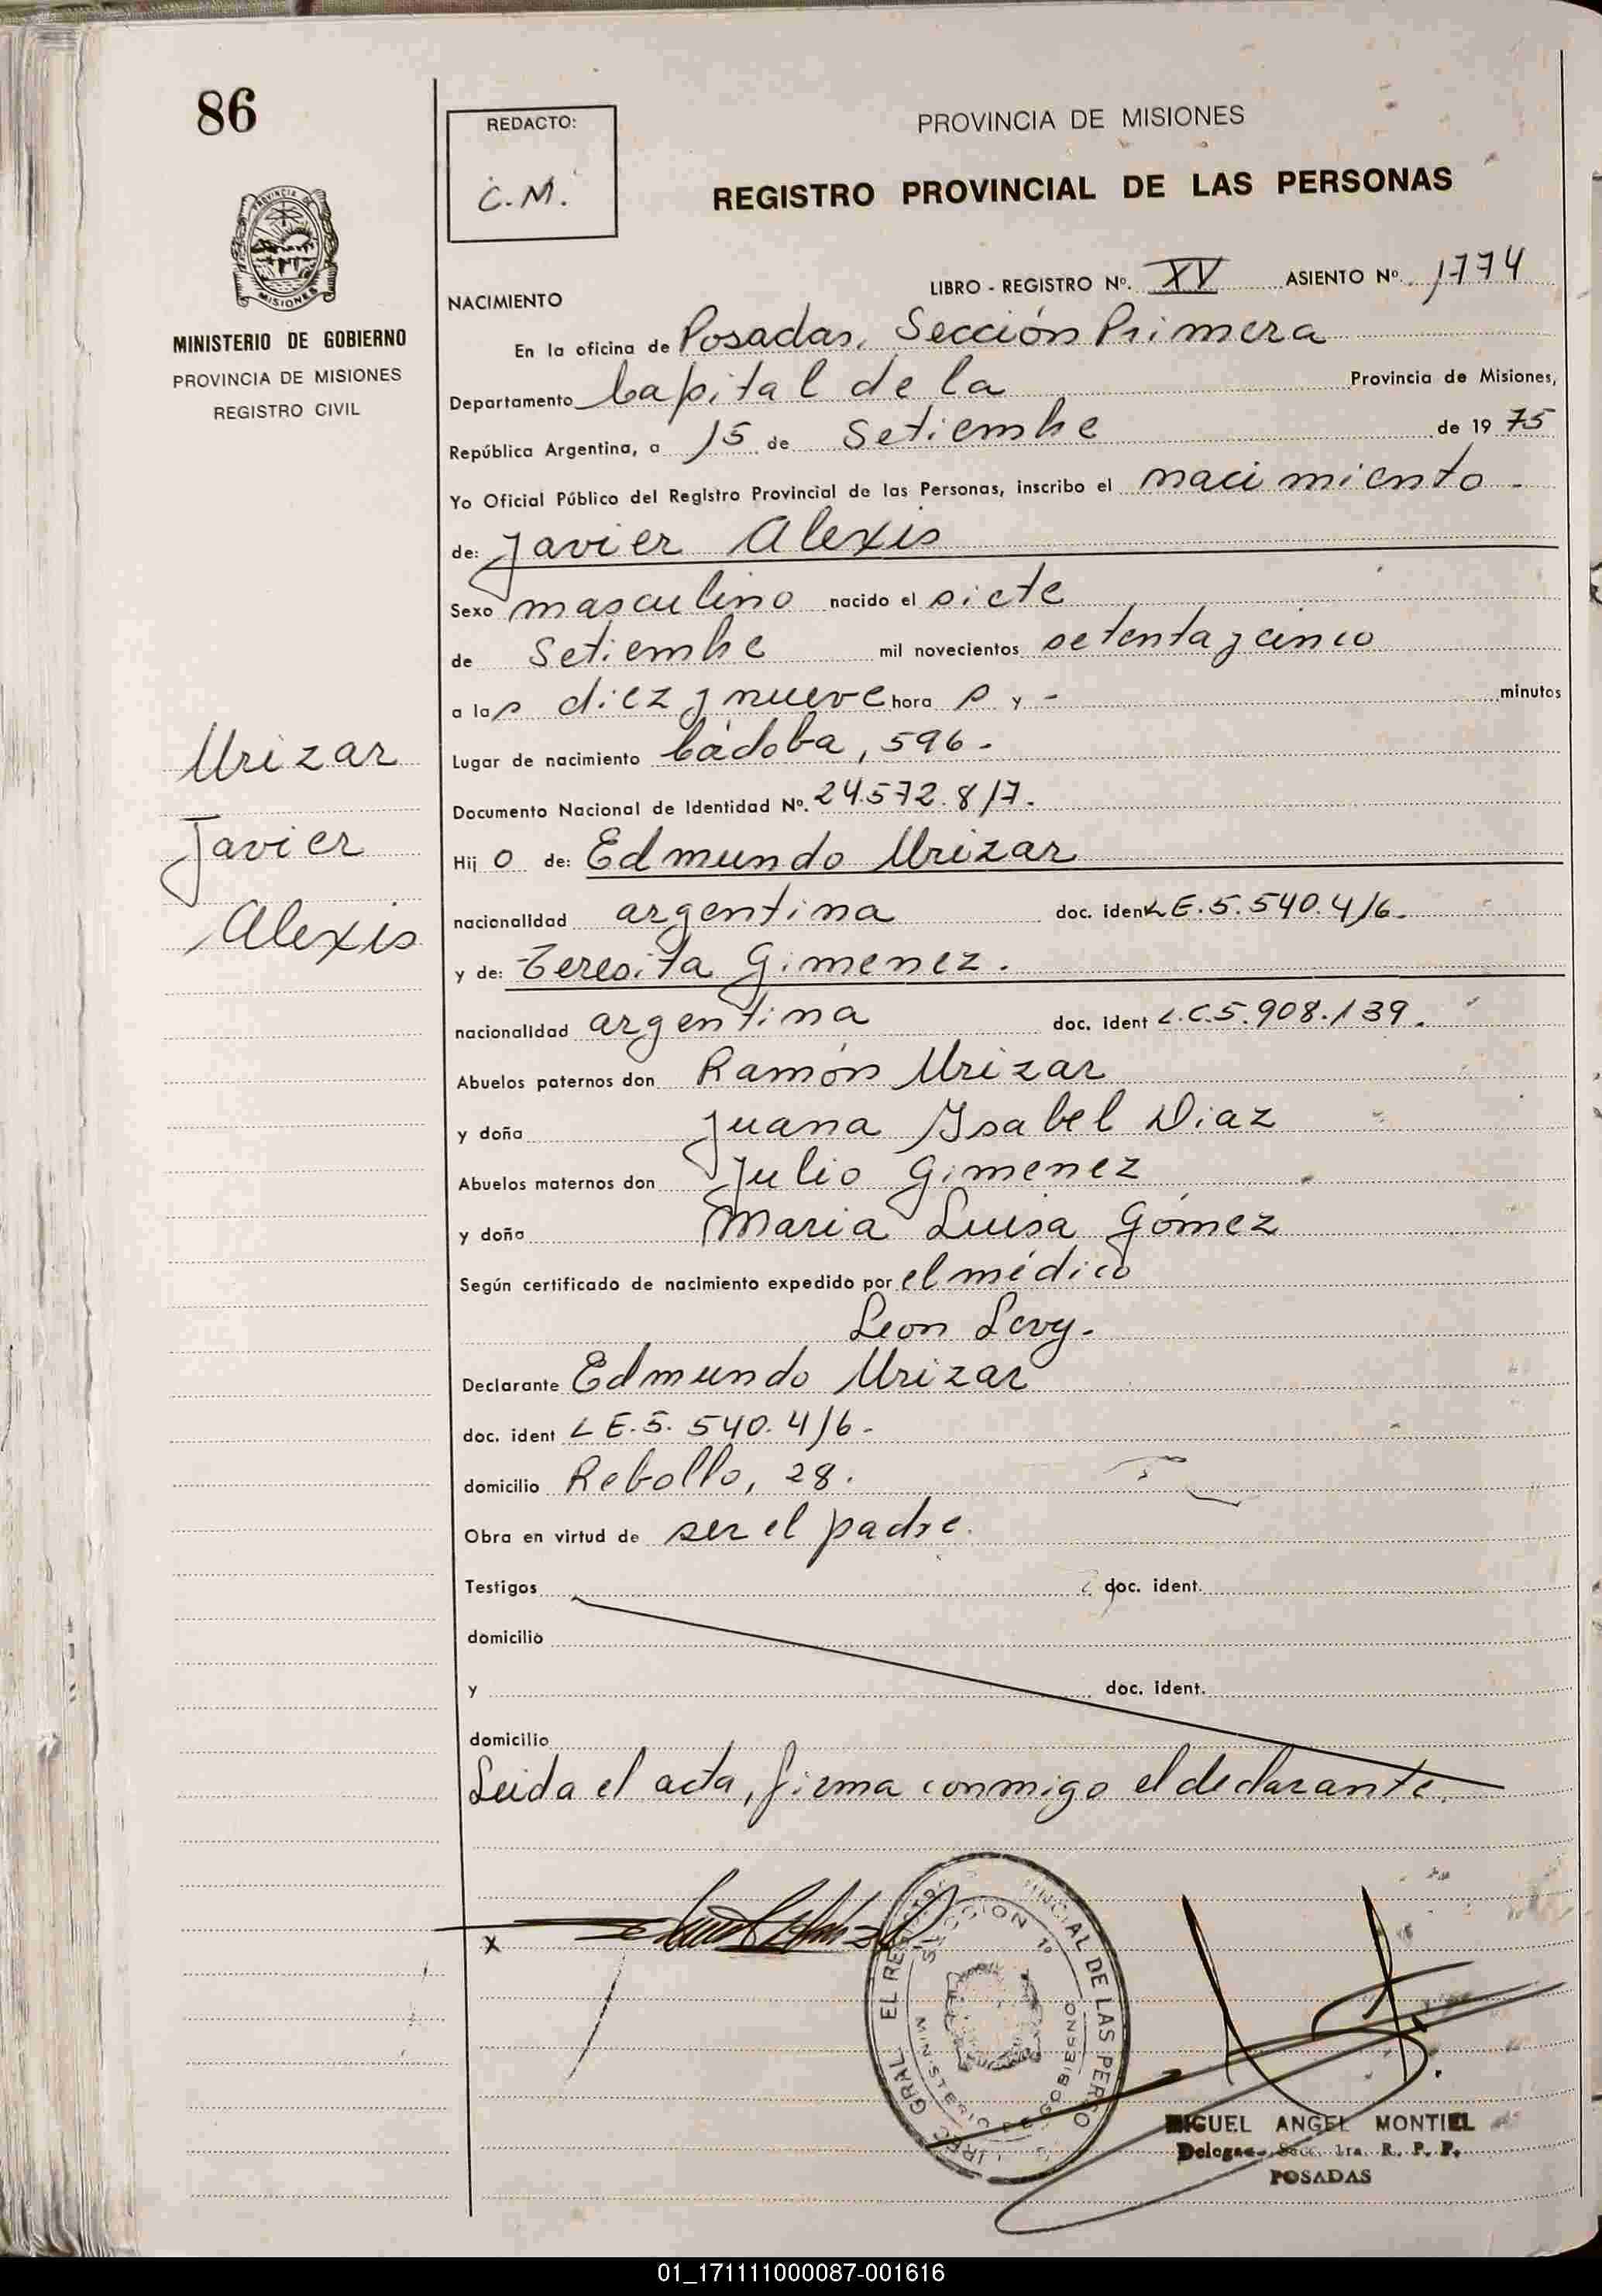 86
REDACTO:
C.M.
PROVINCIA DE MISIONES
REGISTRO PROVINCIAL DE LAS PERSONAS
LIBRO - REGISTRO Nº. XV ASIENTO Nº. 1774
MISIONES
MINISTERIO DE GOBIERNO
PROVINCIA DE MISIONES
REGISTRO CIVIL
NACIMIENTO
En la oficina de Posadas, Sección Primera
Departamento Capital de la Provincia de Misiones,
República Argentina, a 15 de Setiembre de 19 75
Yo Oficial Público del Registro Provincial de las Personas, inscribo el nacimiento -
de: Javier Alexis
Sexo masculino nacido el siete
de Setiembre mil novecientos setenta y cinco
a las diez y nueve hora s y - minutos
Lugar de nacimiento Cádoba, 596.-
Documento Nacional de Identidad Nº. 24.572.817.
Hij o de: Edmundo Urizar
nacionalidad argentina doc. ident L.E.5.540.416.
y de: Teresita Gimenez.
nacionalidad argentina doc. ident L.C.5.908.139.
Abuelos paternos don Ramón Urizar
y doña Juana Ysabel Diaz
Abuelos maternos don Julio Gimenez
y doña Maria Luisa Gómez
Según certificado de nacimiento expedido por el médico
Leon Levy.
Declarante Edmundo Urizar
doc. ident L E.5. 540.416.
domicilio Rebollo, 28.
Obra en virtud de ser el padre.
Testigos doc. ident.
domicilio
y doc. ident.
domicilio
Leida el acta, firma conmigo el declarante.
Urizar
Javier
Alexis
x
SECCION 1º
MINISTERIO DE GOBIERNO
MIGUEL ANGEL MONTIEL
Secc. 1ra. R. P. P.
POSADAS
01_171111000087-001616